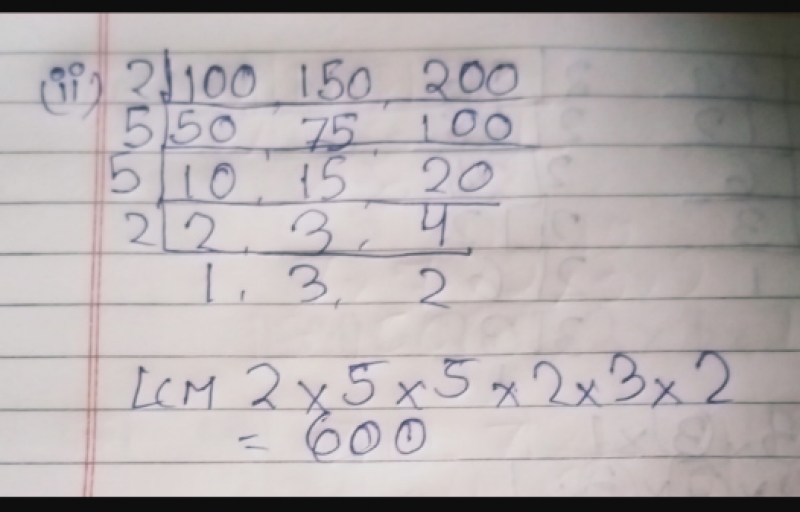 (ii) 2 100, 150, 200
5 50, 75, 100
5 10, 15, 20
2 2, 3, 4
1, 3, 2
LCM 2 × 5 × 5 × 2 × 3 × 2
= 600